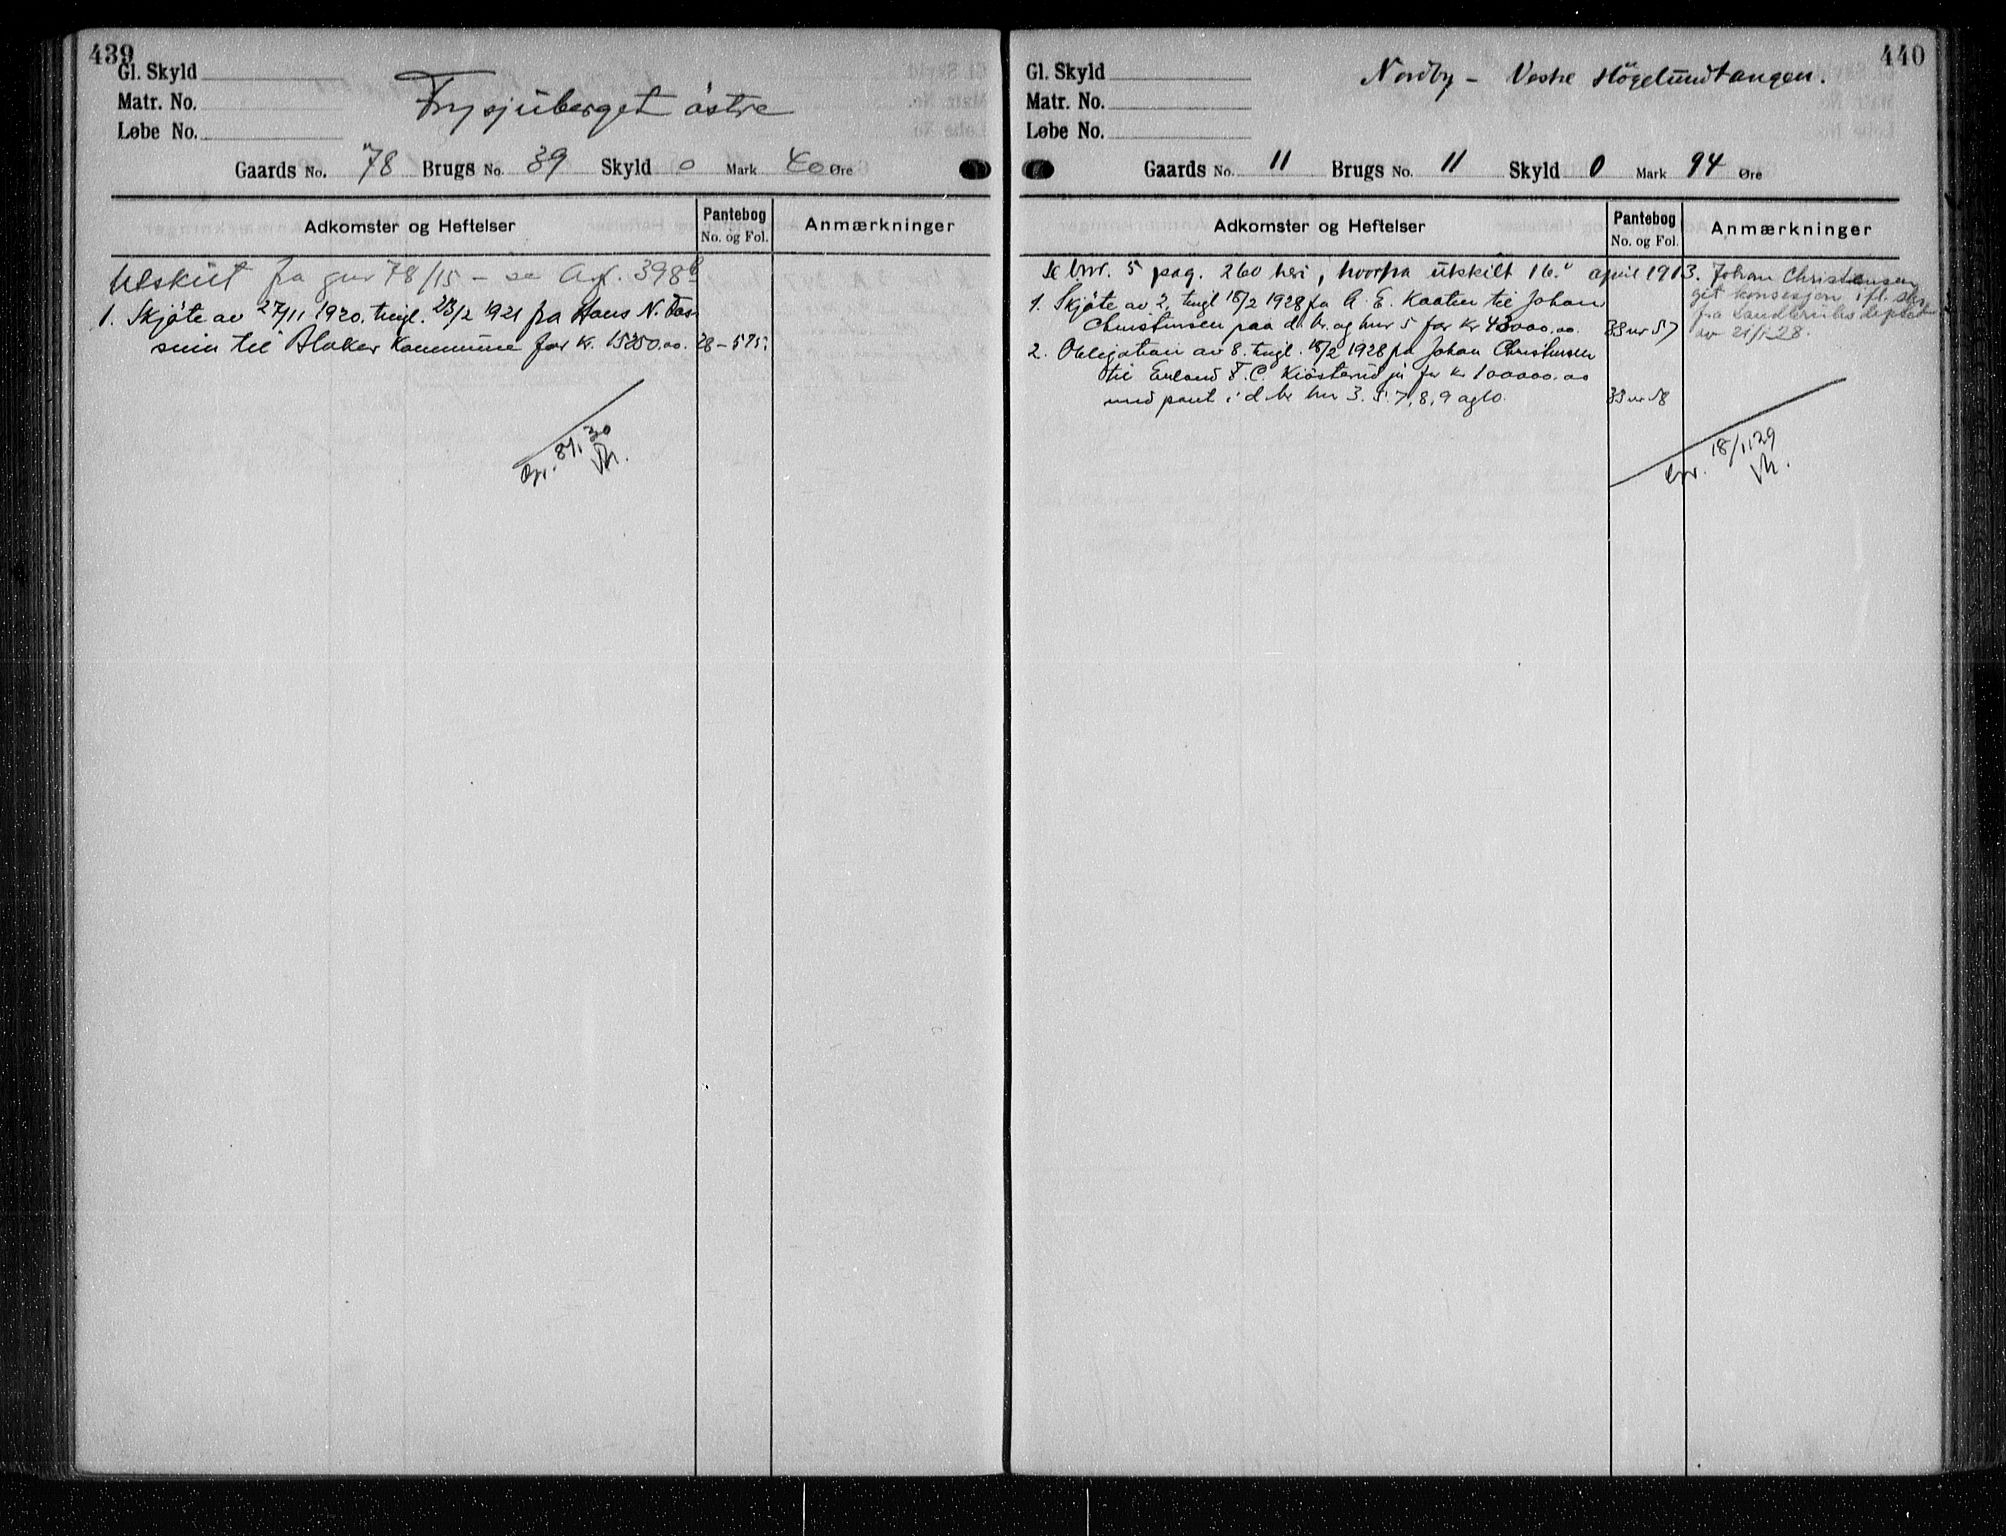 439
Gl. Skyld
Matr. No.
Løbe No.
Frysjuberget östre
Gaards No. 78 Brugs No. 39 Skyld 0 Mark 40 Øre
Adkomster og Heftelser
Pantebog
No. og Fol.
Anmærkninger
Utskilt fra gnr 78/15 – se 398b
1. Skjöte av 27/11 1920. tingl. 23/2 1921 fra Hans N. Fos-
til Blaker Kommune for kr. 15250.00. 28 – 575.
Ovf. 8/1 30
440
Gl. Skyld
Matr. No.
Løbe No.
Nordby – Vestre Högelundtangen.
Gaards No. 11 Brugs No. 11 Skyld 0 Mark 94 Øre
Adkomster og Heftelser
Pantebog
No. og Fol.
Anmærkninger
Se bnr. 5 pag. 260 heri, hvorfra utskilt 16. april 1913.
1. Skjöte av 2. tingl 18/2 1928 fra A. E. Kaaten til Johan
Christensen paa d. br. og bnr 5 for kr 43000.00. 33 nr 57
2. Obligation av 8. tingl. 18/2 1928 fra Johan Christensen
til Erland F. C. Kiösterud jr for kr 100000.00
med pant i d. br. bnr 3. 5. 7, 8, 9 og 10. 33 nr 58
Johan Christensen
git konsesjon ifl. skr.
fra Landbruksdeptet
av 21/1-28.
18/1 29